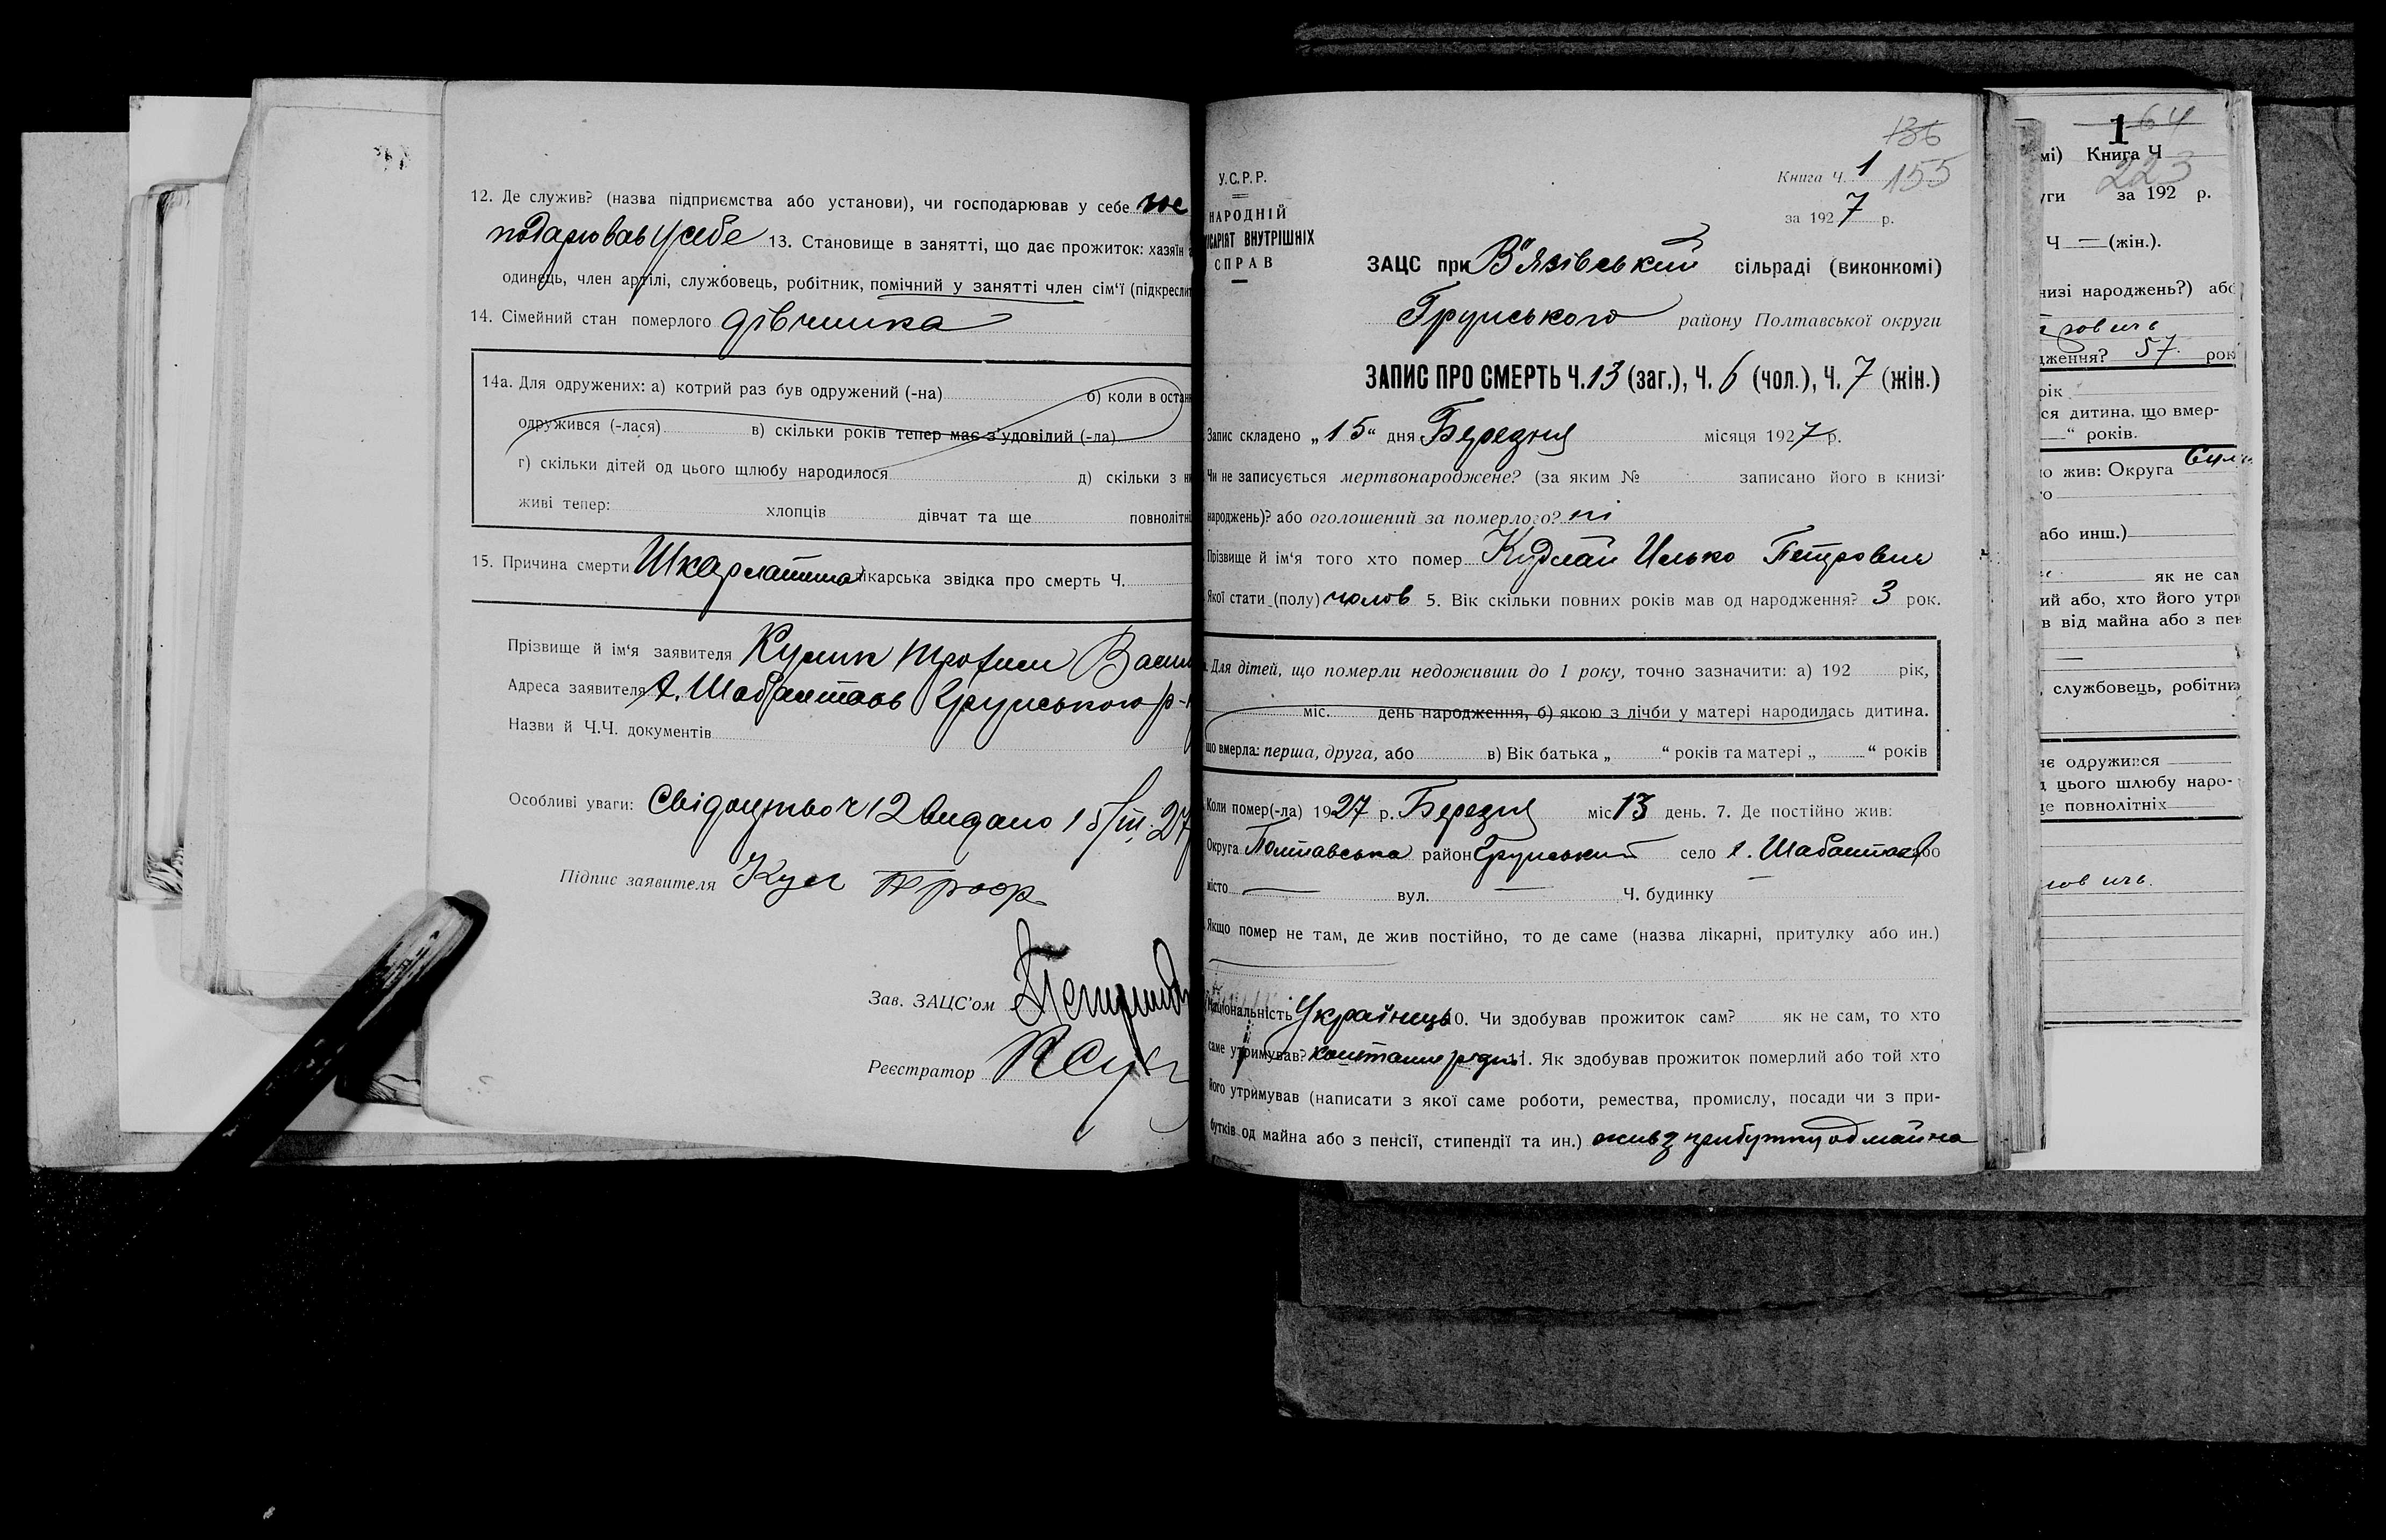 12. Де служив? (назва підприємства або установи), чи господарював у себе не
подарював у себе 13. Становище в занятті, що дає прожиток: хазяїн
одинець, член артілі, службовець, робітник, помічний у занятті член сім'ї (підкреслит
14. Сімейний стан померлого дівчинка
14а. Для одружених: а) котрий раз був одружений (-на) б) коли в остан
одружився (-лася) в) скільки років тепер має з'удовілий (-ла)
г) скільки дітей од цього щлюбу народилося д) скільки з н
живі тепер: хлопців дівчат та ще повнолітні
15. Причина смерти Шкарлатина лікарська звідка про смерть Ч.
Прізвище й ім'я заявителя Кулик Трофим Васи
Адреса заявителя х. Шабалтаєв Грунського р-
Назви й Ч.Ч. документів
Особливі уваги: Свідоцтво ч 12 видано 15/III 27
Підпис заявителя Кул Трооф
Зав. ЗАЦС'ом
Реєстратор
136
У.С.Р.Р.
Книга Ч. 1 155
НАРОДНІЙ
за 1927 р.
ІСАРІЯТ ВНУТРІШНІХ
СПРАВ
ЗАЦС при В'язівський сільраді (виконкомі)
Грунського району Полтавської округи
ЗАПИС ПРО СМЕРТЬ Ч. 13 (заг.), Ч. 6 (чол.), Ч. 7 (жін.)
Запис складено „15“ дня Березня місяця 1927 р.
Чи не записується мертвонароджене? (за яким № записано його в книзі
народжень)? або оголошений за померлого? ні
Прізвище й ім'я того хто помер Кудлай Илько Петрович
Якої стати (полу) чолов 5. Вік скільки повних років мав од народження? 3 рок.
Для дітей, що померли недоживши до 1 року, точно зазначити: а) 192 рік,
міс. день народження, б) якою з лічби у матері народилась дитина.
що вмерла: перша, друга, або в) Вік батька „ “ років та матері „ “ років
Коли помер(-ла) 1927 р. Березня міс 13 день. 7. Де постійно жив:
Округа Полтавська район Грунський село х. Шабалтаєв або
місто вул. Ч. будинку
Якщо помер не там, де жив постійно, то де саме (назва лікарні, притулку або ин.)
Національність Українець 10. Чи здобував прожиток сам? як не сам, то хто
саме утримував? 11. Як здобував прожиток померлий або той хто
його утримував (написати з якої саме роботи, ремества, промислу, посади чи з при-
бутків од майна або з пенсії, стипендії та ин.) жив з прибутку од майна
1 64
мі) Книга Ч
223
уги за 192 р.
Ч — (жін.).
низі народжень?) або
ження? 57 рок
рік
ся дитина, що вмер-
“ років.
о жив: Округа
або инш.)
як не сам
ий або, хто його утри
в від майна або з пен
службовець, робітни
нє одружився
д цього шлюбу наро-
ще повнолітніх